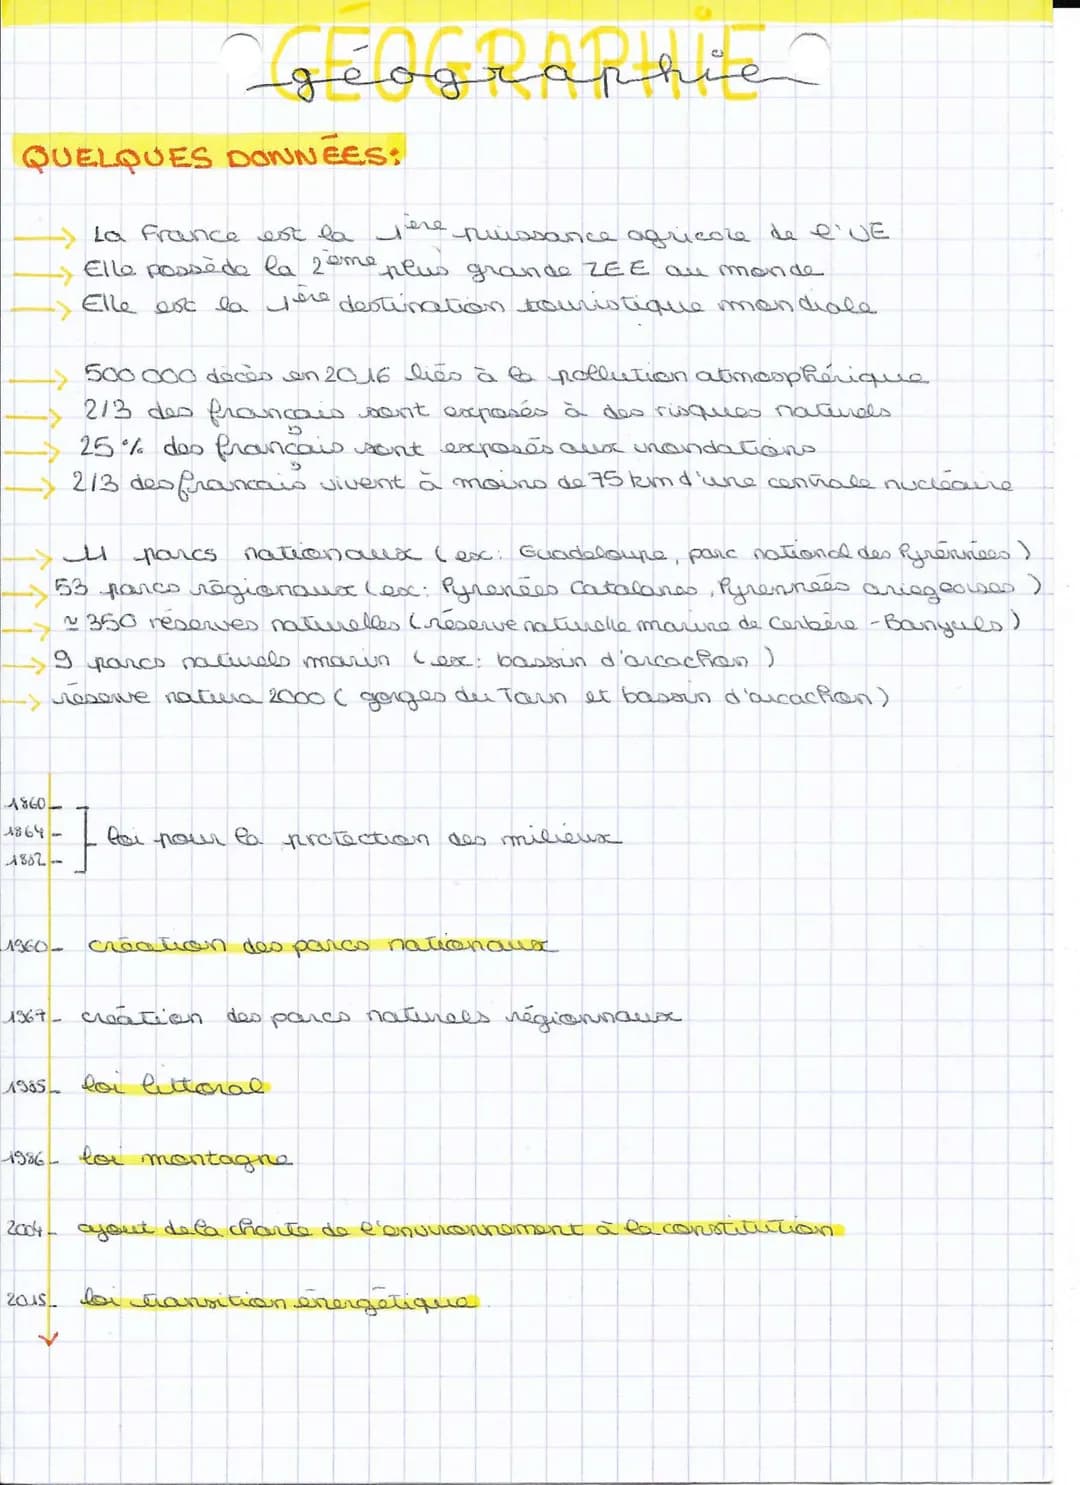 GÉOGRAPHIE
géographie
QUELQUES DONNÉES:
→ La France est la 1ère puissance agricole de l'UE
→ Elle possède la 2ème plus grande ZEE au monde
→ Elle est la 1ère destination touristique mondiale
→ 500 000 décès en 2016 liés à la pollution atmosphérique
→ 2/3 des français sont exposés à des risques naturels
→ 25 % des français sont exposés aux inondations
→ 2/3 des français vivent à moins de 75 km d'une centrale nucléaire
→ 11 parcs nationaux (ex: Guadeloupe, parc national des Pyrénnées)
→ 53 parcs régionaux (ex: Pyrenées Catalanes, Pyrennées ariegeoises)
→ ≈ 350 réserves naturelles (réserve naturelle marine de Cerbère - Banyuls)
→ 9 parcs naturels marin (ex: bassin d'arcachon)
→ réserve natura 2000 (gorges du Tarn et bassin d'arcachon)
1860
1864
1882
loi pour la protection des milieux
1960 création des parcs nationaux
1967 création des parcs naturels régionnaux
1985 loi littoral
1986 loi montagne
2004 ajout de la charte de l'environnement à la constitution
2015 loi transition énergétique